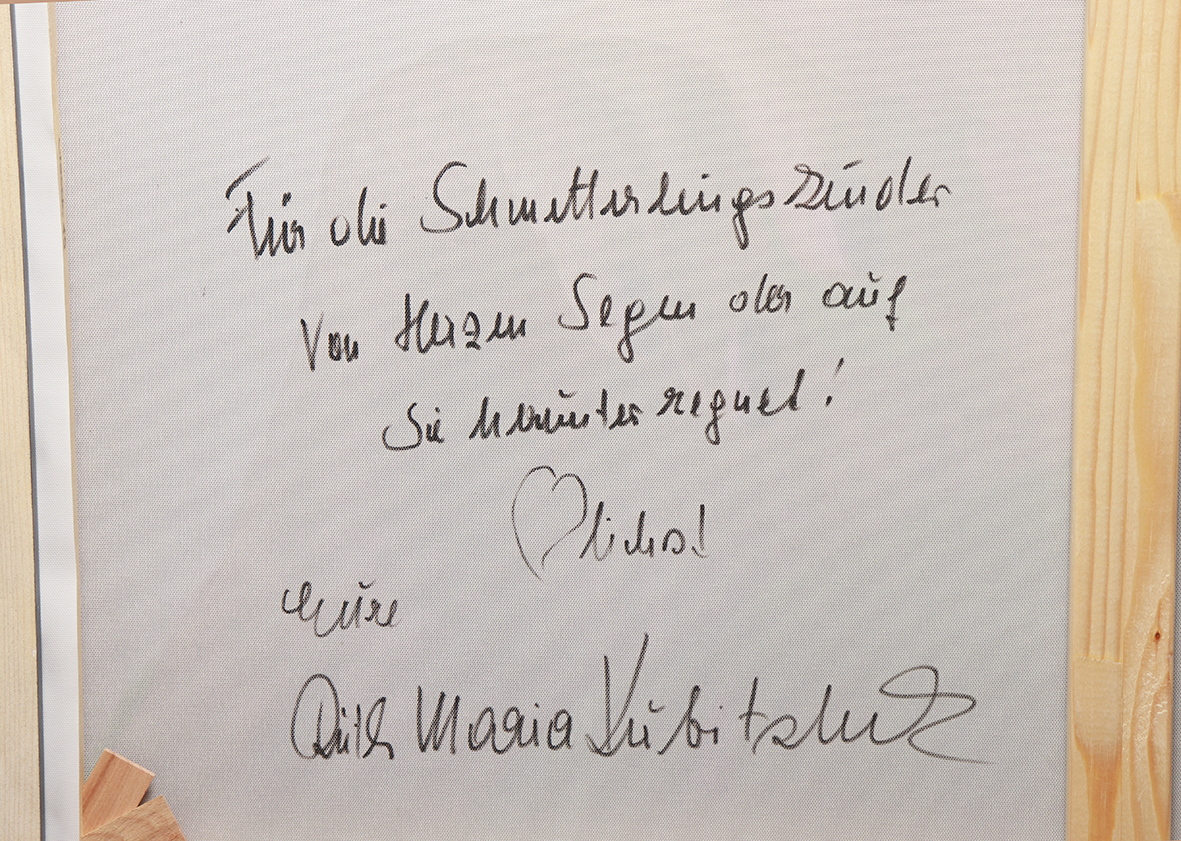 Für die Schmetterlingskinder
Von Herzen Segen der auf
Sie herunter regnet!
♡lichs!
Eure
Ruth Maria Kubitschek